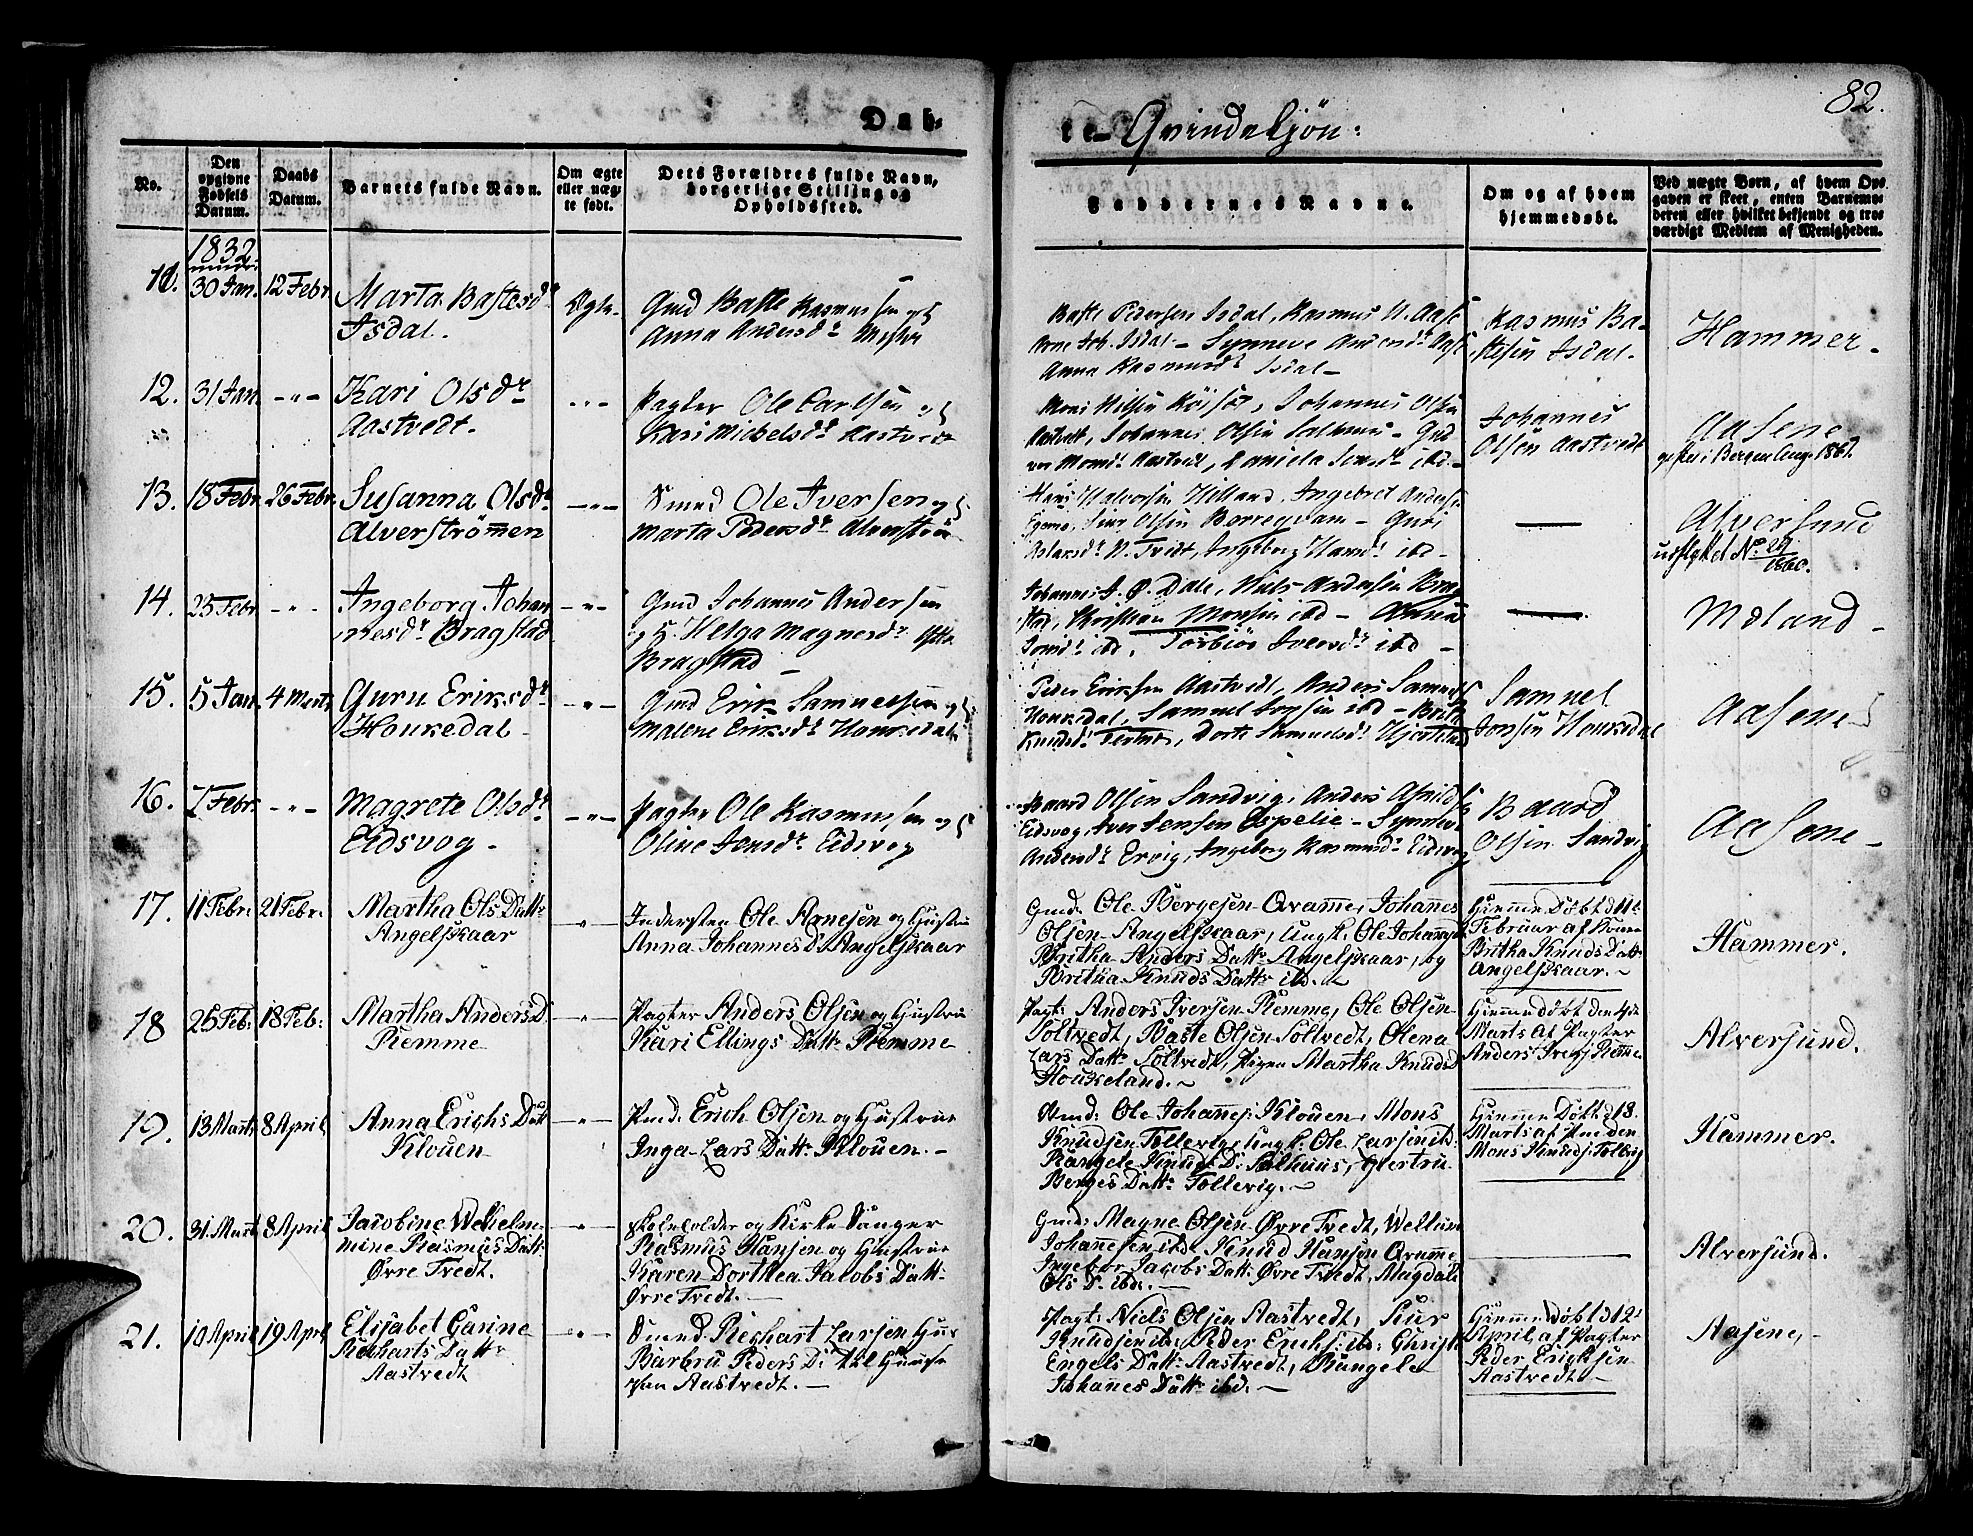 82.
Døb-
te Qvindekjøn:
No.
Den opgivne Fødsels Datum.
Daabs Datum.
Barnets fulde Navn.
Om ægte eller uægte født.
Dets Forældres fulde Navn, borgerlige Stilling og Opholdssted.
Faddernes Navne.
Om og af hvem hjemmedøbt.
Ved uægte Børn, af hvem Opgaven er skeet, enten Barnemoderen eller hvilket bekjendt og troværdigt Medlem af Menigheden.
1832
11. 30 Jan. 12 Febr
Marta Bastesdr
Isdal.
Ægte.
Gmd Baste Rasmussen og
Anna Andersdr
Baste Pedersen Isdal, Rasmus
Arne Joh. Isdal - Synneve Andersdr
Anna Rasmusdr Isdal -
Rasmus Ba-
stesen Isdal.
Hammer.
12. 31 Jan. - " -
Kari Olsdr
Aastvedt.
- " -
Pagter Ole Carlsen og
Kari Mickelsdr Aastvedt
Mons Nilsen Johannes Olsen
Aastvedt, Johannes Olsen
Monsdr Aastvedt, Daniela ibd -
Johannes
Olsen Aastvedt
Aasene
1867.
13. 18 Febr. 26 Febr.
Susanna Olsdr
Alverstrømmen
- " -
Smed Ole Iversen og
Marta Pedersdr Alverstrøm
Hans Halvorsen Hilland, Ingebret Anders
Olsen Borregvam - Guri
Aslaksdr N. Tvedt, Ingeborg Hansdr ibd -
Alversund
udflyttet No 29
1860.
14. 25 Febr. - " -
Ingeborg Johan
nesdr Bragstad
- " -
Gmd Johannes Andersen
og H. Helga Magnesdr
Bragstad -
Johannes J. Ø. Dale, Niels Andersen Brag
stad, Kristian Monsen ibd - Anna
ibd, Torbiør Iversdr ibd -
Mæland -
15. 5 Jan. 4 Marts
Guru Eriksdr
Houkedal -
- " -
Gmd Erik Samuelsen og
Malene Eriksdr Houkedal
Peder Eriksen Aastvedt, Anders Samuels
Houkedal, Samuel Jonsen ibd - Brita
Knudsdr Tertnes, Dorte Samuelsdr Hjortland
Samuel
Jonsen Houkedal
Aasene
16. 7 Febr. - " -
Magrete Olsdr
Eidsvog -
- " -
Pagter Ole Rasmussen og
Oline Jensdr Eidsvog
Baard Olsen Sandvig, Anders
Eidsvog, Iver Jensen Espelie - Synnev
Andersdr Ervig, Ingeborg Rasmusdr Eidsvog
Baard
Olsen Sandvig
Aasene -
17. 11 Febr: 21 Febr.
Martha Ols Dattr
Angelskaar
- " -
Indersten Ole Arnesen og Hustru
Anna Johannes Dr Angelskaar
Gmd: Ole Bergesen Qvamme, Johannes
Olsen Angelskaar, Ungk. Ole Johannes
Britha Anders Dattr Angelskaar, og
Britha Knuds Dattr ibd.
Hiemmedøbt d 11te
Februar af Konen
Britha Knuds Dattr
Angelskaar.
Hammer.
18 25 Feb: 18 Feb:
Martha Anders D.
Remme
- " -
Pagter Anders Olsen og Hustru
Kari Ellings Dattr Remme
Pagt: Anders Iversen Remme, Ole Olsen
Soltvedt, Baste Olsen Soltvedt, Olena
Lars Dattr Soltvedt, Pigen Martha Knuds D
Houkeland.
Hiemmedøbt den 4de
Marts af Pagter
Anders Ivers: Remme
Alversund.
19. 13 Marts 8 April
Anna Erichs Datt
Klouen
- " -
Pmd: Erich Olsen og Hustrue
Inga Lars Dattr Klouen. -
Gmd: Ole Johannes: Klouen, Mons
Knudsen Tollevig, Ungk. Ole Larsen ibd.
Rangele Knuds D: Salhuus, Giertru
Berges Dattr Tollevig. -
Hiemmedøbt d 18.
Marts af Pmden
Mons Knuds: Tollevig
Hammer.
20. 31 Marts 8 April
Jacobine Welhelm-
mine Rasmus Dattr
Øvre Tvedt.
- " -
Skoleholder og Kirke Sanger
Rasmus Hansen og Hustrue
Karen Dorthea Jacobs Datt-
Øvre Tvedt. -
Gmd: Magne Olsen Øvre Tvedt, Wellum
Johannesen ibd. Knud Hansen Qvamme
Ingebor Jacobs Dattr Øvre Tvedt, Magdali
Ols D. ibd. -
Alversund.
21. 10 April 19 April
Elisabet Garine
Recharts Dattr
Aastvedt
- " -
Smed Rechart Larsen Hus
Barbru Peders Dr til Huuse
paa Aastvedt. -
Pagt: Niels Olsen Aastvedt, Siur
Knudsen ib: Peder Erichs: ibd: Christi
Engels Dattr Aastvedt, Rangele
Johannes Dattr ibd. -
Hiemmedøbt d 12
April, af Pagter
Peder Erichsen
Aastvedt
Aasene, -